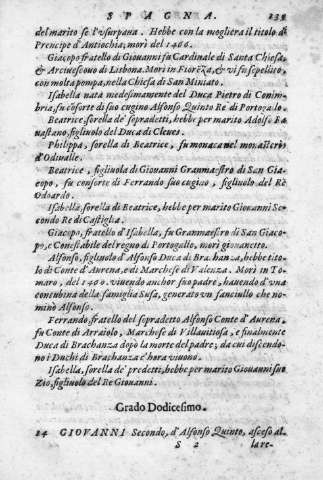 SPAGNA. 139
del marito se l'usurpaua. Hebbe con la mogliera il titolo di
Prencipe d'Antiochia; morì del 1406.
Giacopo fratello di Giouanni fu Cardinale di Santa Chiesa,
& Arciuescouo di Lisbona. Morì in Fiorẽza, & vi fu sepellito,
con molta pompa, nella Chiesa di San Miniato.
Isabella nata medesimamente del Duca Pietro di Conim-
bria, fu cõsorte di suo cugino Alfonso Quinto Rè di Portogallo.
Beatrice, sorella de' sopradetti, hebbe per marito Adolfo Ra
uastano, figliuolo del Duca di Cleues.
Philippa, sorella di Beatrice, fu monaca nel monasterio
d'Odiualle.
Beatrice, figliuola di Giouanni Granmaestro di San Gia-
copo, fu consorte di Ferrando suo cugino, figliuol del Rè
Odoardo.
Isabella, sorella di Beatrice, hebbe per marito Giouanni Se-
condo Re di Castiglia.
Giacopo, fratello d'Isabella, fu Granmaestro di San Giaco-
po, e Conestabile del regno di Portogallo, morì giouanetto.
Alfonso, figliuol d'Alfonso Duca di Braganza, hebbe tito-
lo di Conte d'Aurena, e di Marchese di Valenza. Morì in To-
maro, del 1400. viuendo anchor suo padre, hauendo d'vna
concubina della famiglia Susa, generato vn fanciullo che no-
minò Alfonso.
Ferrando, fratello del sopradetto Alfonso Conte d'Aurena,
fu Conte di Arraiolo, Marchese di Villauittosa, e finalmente
Duca di Brachanza dopò la morte del padre; da cui discendo-
no i Duchi di Brachanza c'hora viuono.
Isabella, sorella de' predetti, hebbe per marito Giouanni suo
Zio, figliuol del Re Giouanni.
Grado Dodicesimo.
14 GIOVANNI Secondo, d'Alfonso Quinto, asceso al-
S 2 la re-